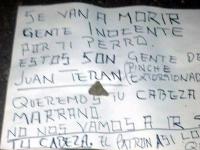 SE VAN A MORIR
GENTE INOCENTE
POR TI PERRO.
ESTOS SON GENTE DE
JUAN TERAN PINCHE (EXTORSIONAD
QUEREMOS TU CABEZA
MARRANO.
NO NOS VAMOS A IR S
TU CABEZA. EL PATRON ASI LO